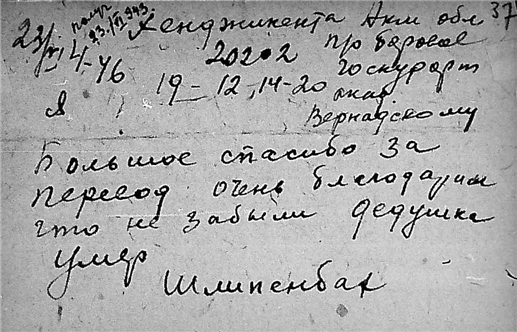 23/VI получ 23.VI 943. Хенджикента Акм обл 37
14-46 20202 про Боровое
Я 19-12, 14-20 Госкурорт
акад
Вернадскому
Большое спасибо за
перевод очень благодарим
что не забыли дедушка
умер
Шлипенбах